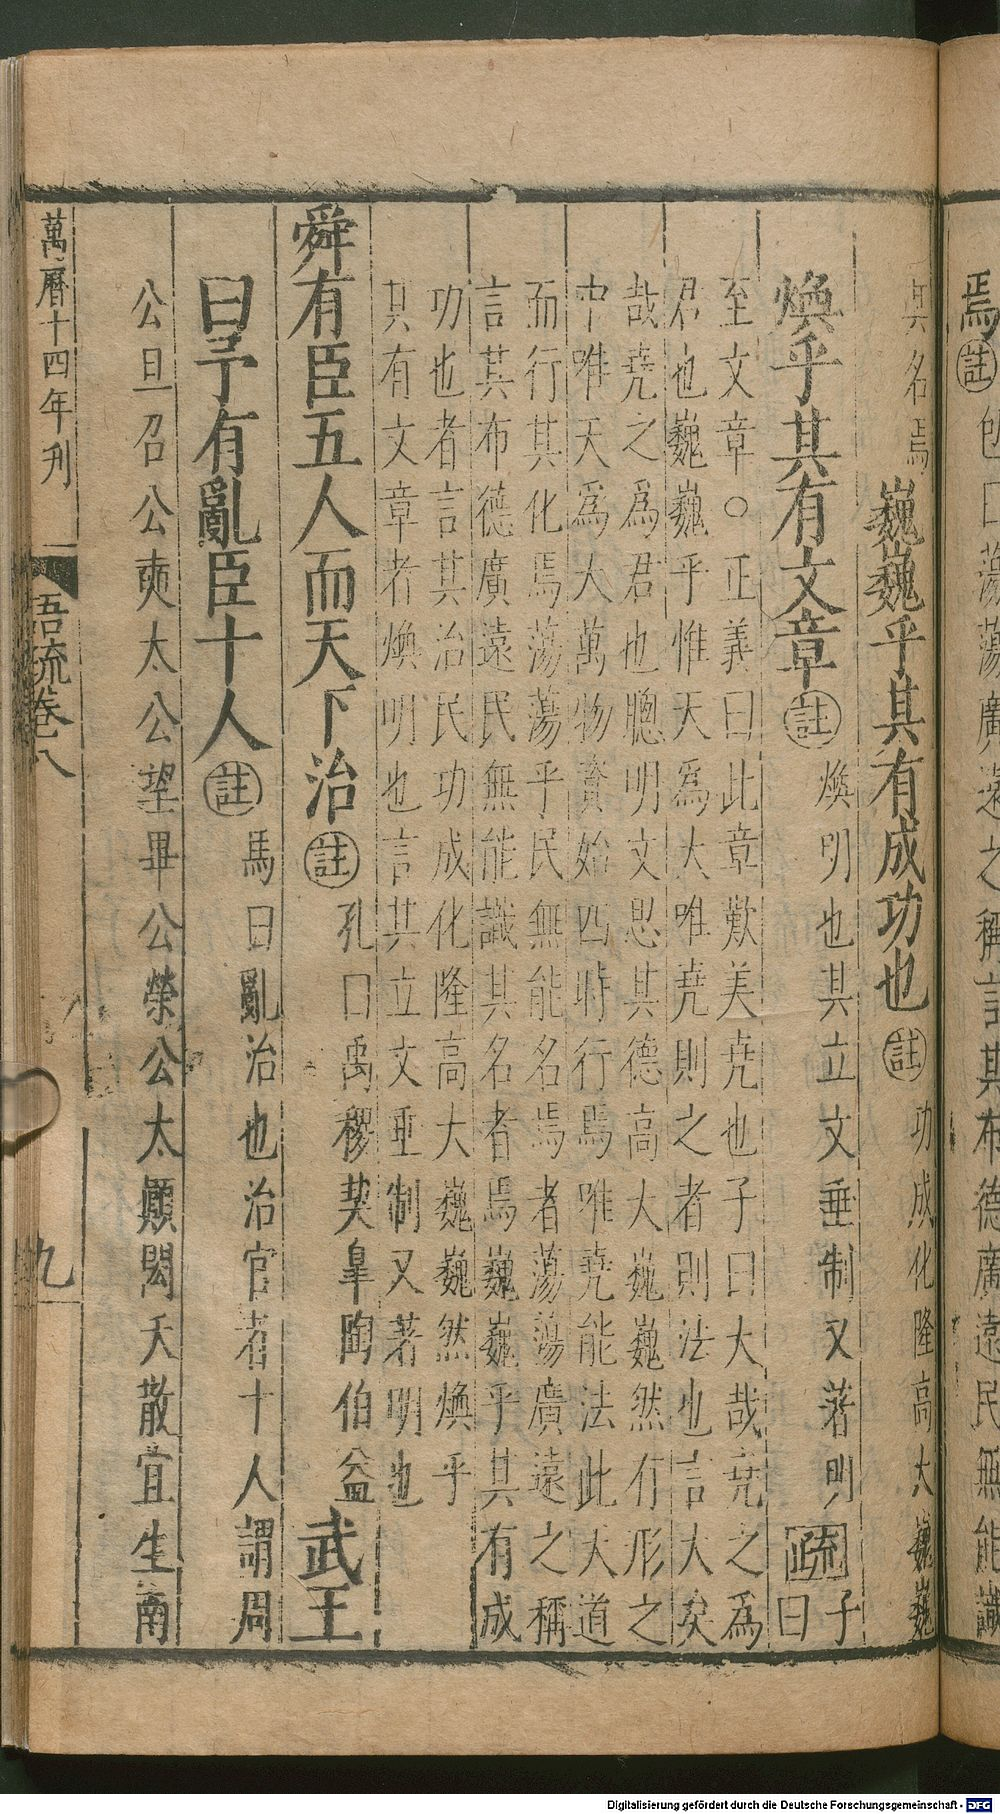 焉註包曰蕩蕩廣遠之稱言其布德廣遠民無能識
其名焉巍巍乎其有成功也註功成化隆高大巍巍
煥乎其有文章註煥明也其立文垂制又著明疏子曰
至文章○正義曰此章歎美尭也子曰大哉尭之為
君也巍巍乎惟天為大唯尭則之者則法也言大矣
哉尭之為君也聰明文思其德高大巍巍然有形之
中唯天為大萬物資始四時行焉唯尭能法此天道
而行其化焉蕩蕩乎民無能名焉者蕩蕩廣遠之稱
言其布德廣遠民無能識其名者焉巍巍乎其有成
功也者言其治民功成化隆高大巍巍然煥乎
其有文章者煥明也言其立文垂制又著明也
舜有臣五人而天下治註孔曰禹稷契皐陶伯益武王
曰予有亂臣十人註馬曰亂治也治官者十人謂周
公旦召公奭太公望畢公榮公太顚閎夭散宜生南
萬曆十四年刋 語疏卷八 九
Digitalisierung gefördert durch die Deutsche Forschungsgemeinschaft - DFG